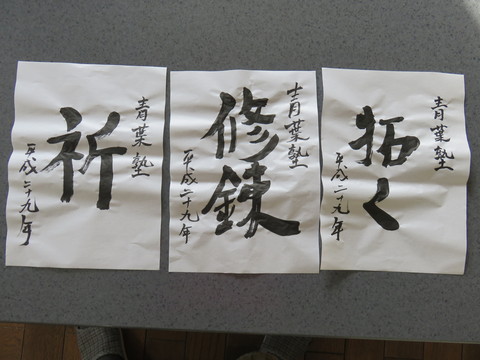 青葉塾
拓く
平成二十九年
青葉塾
修錬
平成二十九年
青葉塾
祈
平成二十九年